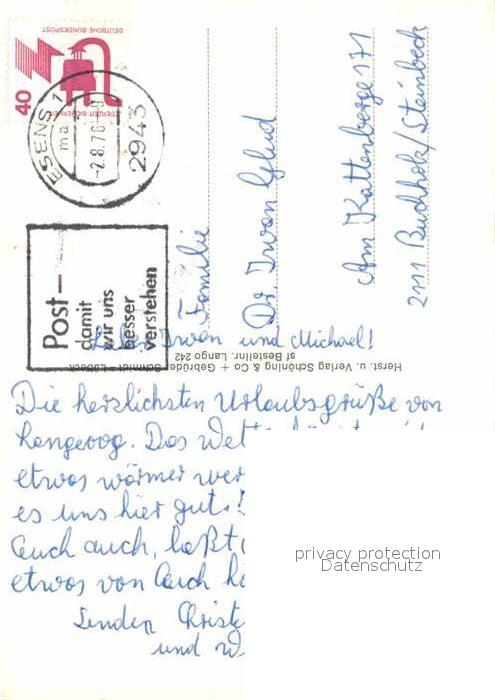 DEUTSCHE BUNDESPOST
JEDERZEIT SICHERHEIT
40
ESENS 1
ma
-2.8.76-9
2943
Post-
damit
wir uns
besser
verstehen
Familie
Dr. Irwon Glud
Am Kattenberge 171
2111 Buchholz/Steinbeck
Horst. u. Verlag Schöning & Co + Gebrüder Schmidt - Lübeck
sf Bestellnr. Lango 242
Liebe Irwon und Michael!
Die herzlichsten Urlaubsgrüße von
Langeoog. Das Wet
etwas wärmer wer
es uns hier gut.
Euch auch, laßt
etwas von Euch hö
Senden Christ
und W
privacy protection
Datenschutz